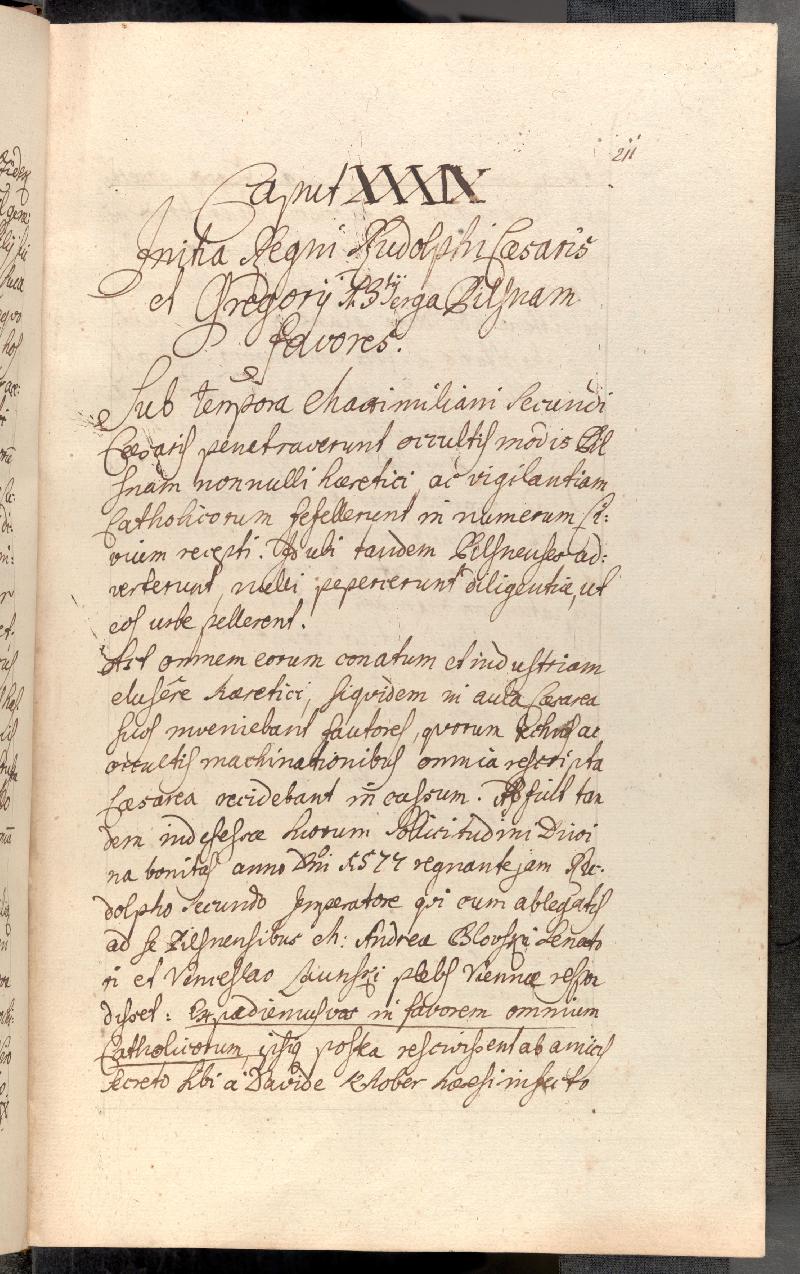 211
Caput XXXIX
Initia Regni Rudolphi Cæsaris
et Gregorij 13tij erga Pilsnam
favores.
Sub tempora Maximiliani Secundi
Cæsaris penetraverunt occultis modis Pil
snam nonnulli hæretici, ac vigilantiam
Catholicorum fefellerunt in numerum Ci:
vium recepti. Ast ubi tandem Pilsnenses ad:
verterunt, nulli pepercerunt diligentiæ, ut
eos urbe pellerent.
Ast omnem eorum conatum et industriam
elusêre hæretici, siqvidem in aula Cæsarea
suos inveniebant fautores, qvorum technis ac
occultis machinationibus omnia rescripta
Cæsarea recidebant in cassum. Affuit tan
dem indefessæ horum sollicitudini Divi
na bonitas anno Dñi 1577 regnante jam Ru:
dolpho Secundo Imperatore qvi cum ablegatis
ad se Pilsnensibus M: Andrea Blovski Senato
ri et Venceslao Launski plebis Viennæ respon
disset: Expediemus vos in favorem omnium
Catholicorum, ipsiq postea rescivissent ab amicis
secreto sibi a Davide Khober hæresi infecto